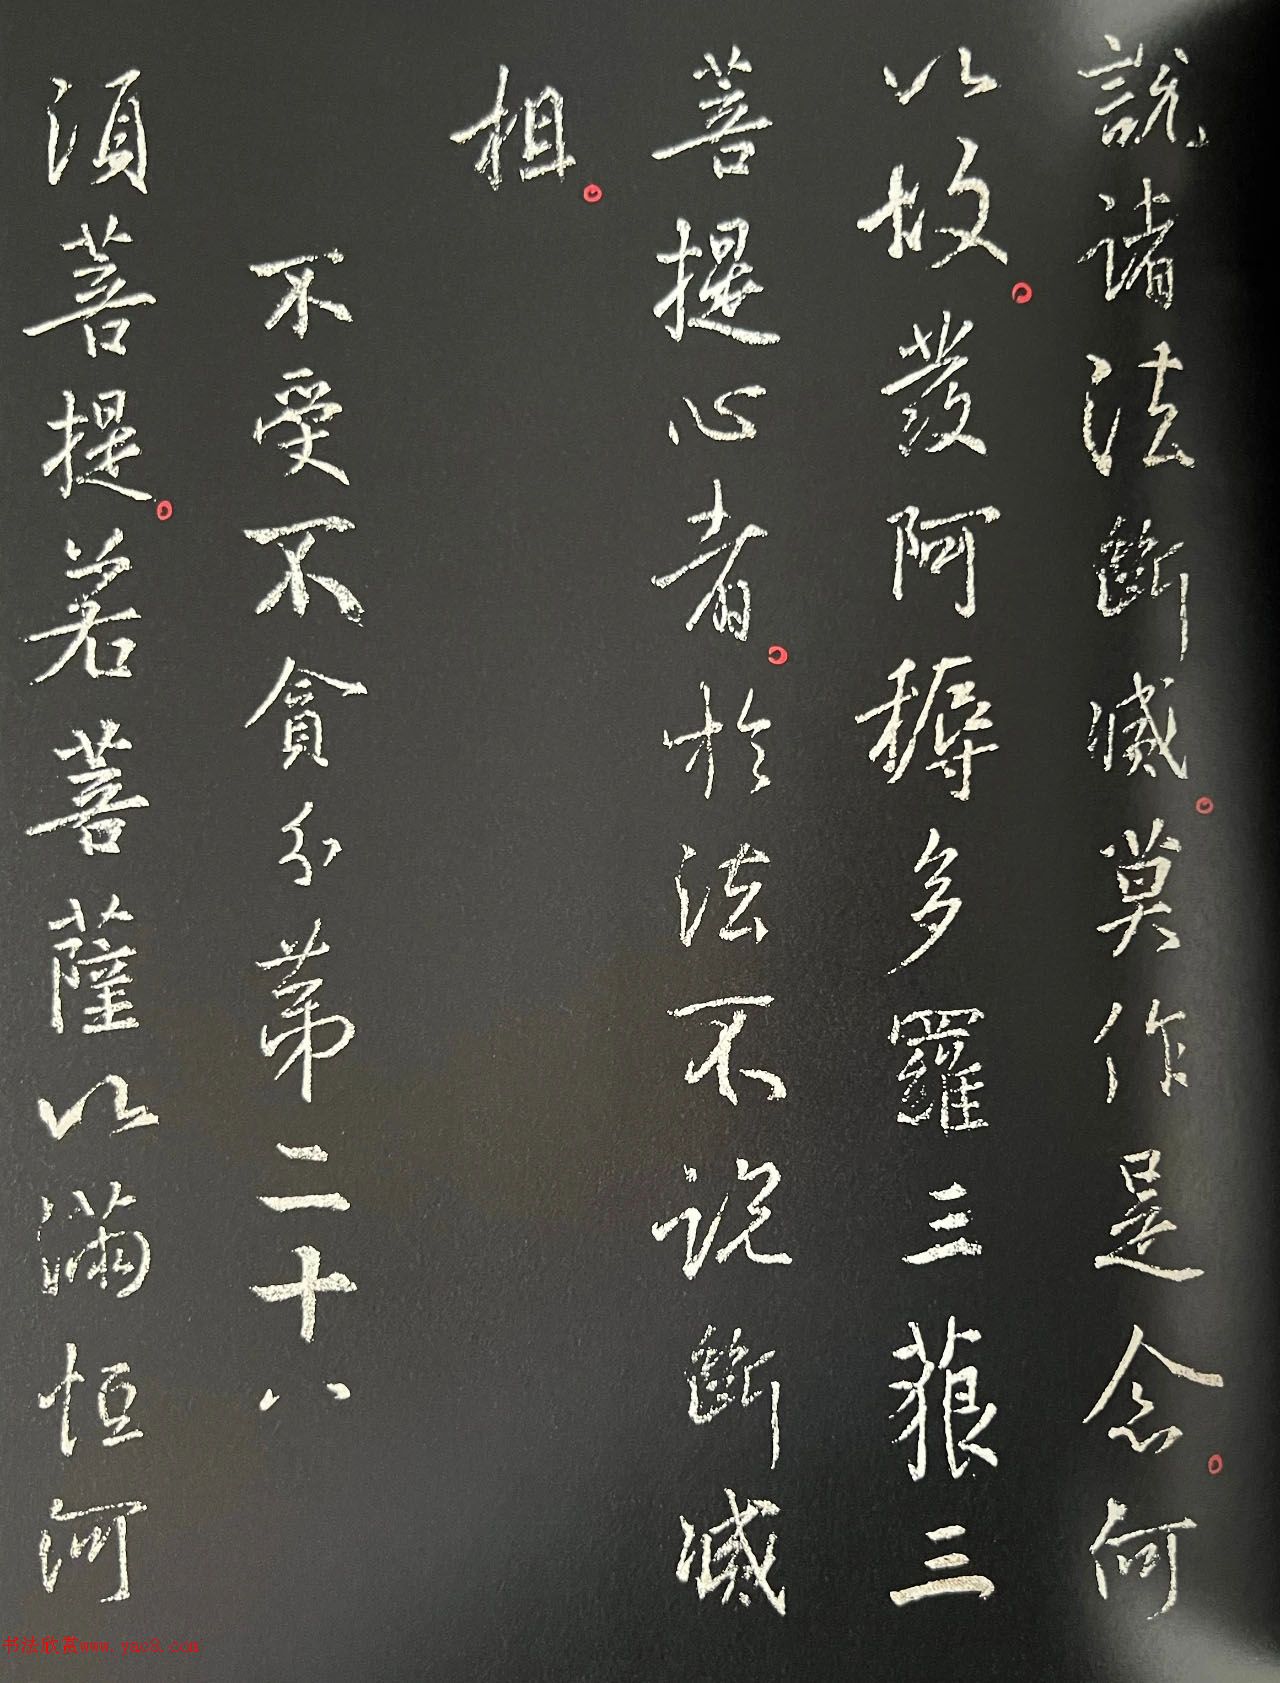 說諸法斷滅。莫作是念。何
以故。發阿耨多羅三藐三
菩提心者。於法不說斷滅
相。
不受不貪分第二十八
須菩提。若菩薩以滿恒河
书法欣赏www.yac8.com